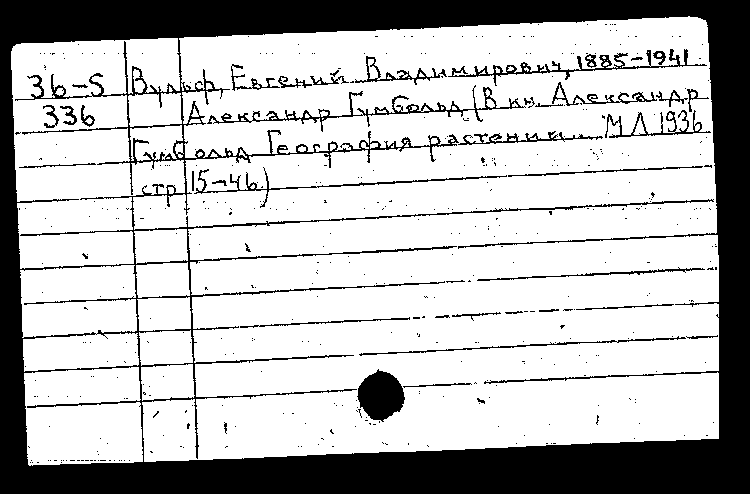 36-5 Вульф, Евгений Владимирович, 1885-1941
336 Александр Гумбольд (В кн. Александр
Гумбольд География растений... М Л 1936
стр 15-46)